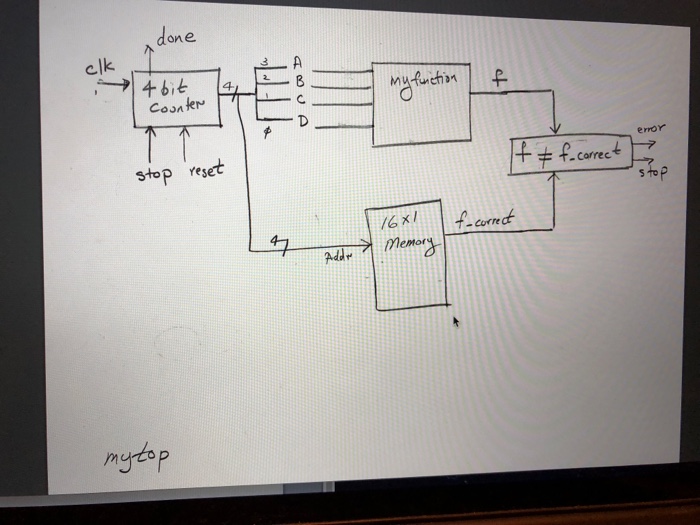 done
clk
4 bit
Counter
stop
reset
4
3
A
2
B
1
C
φ
D
myfunction
f
f ≠ f_correct
error
stop
16x1
Memory
f_correct
4
Addr
mytop